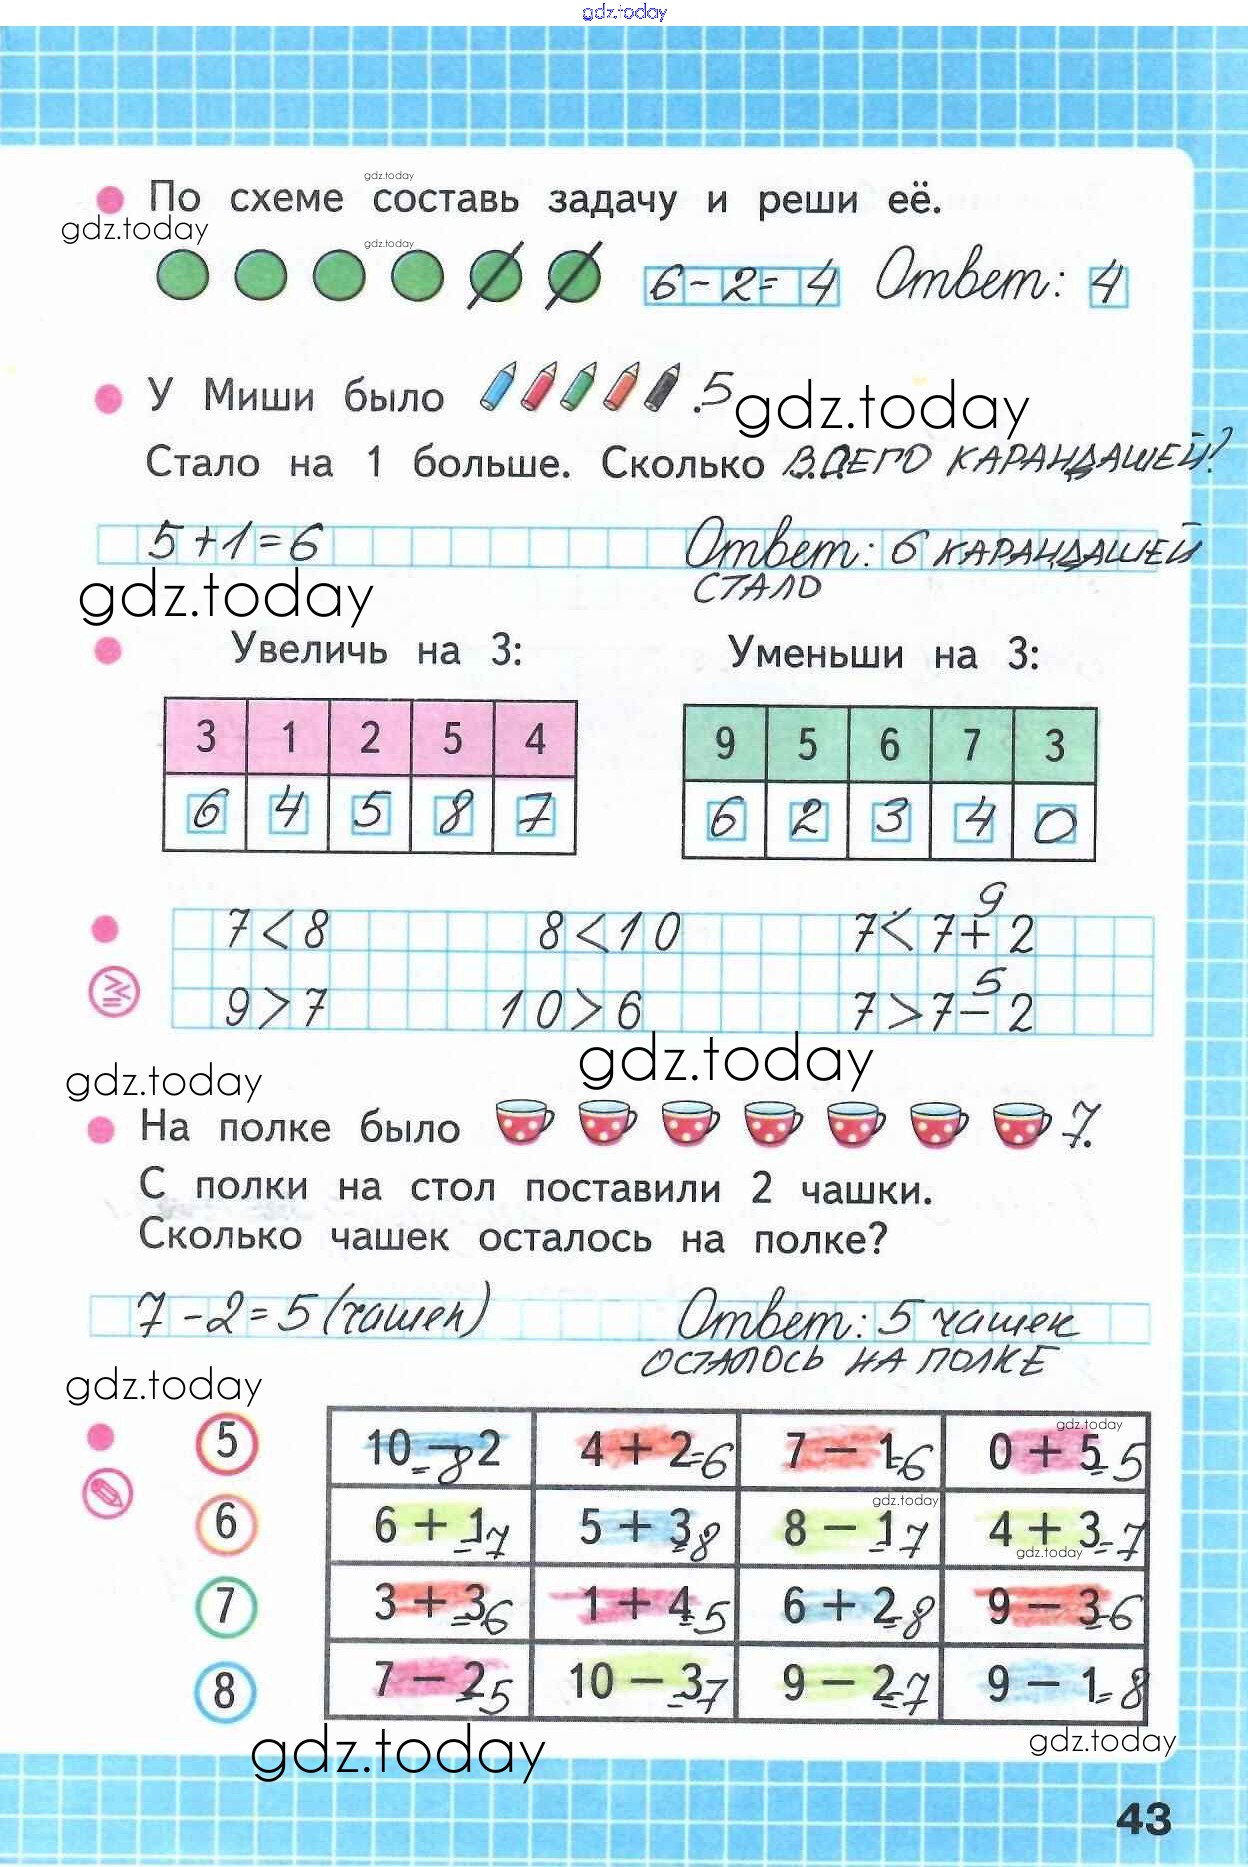 gdz.today
По схеме составь задачу и реши её.
gdz.today
gdz.today
gdz.today
6-2=4 Ответ: 4
У Миши было 5.
gdz.today
Стало на 1 больше. Сколько ВСЕГО КАРАНДАШЕЙ?
5+1=6 Ответ: 6 КАРАНДАШЕЙ
СТАЛО
gdz.today
Увеличь на 3: Уменьши на 3:
3 1 2 5 4 9 5 6 7 3
6 4 5 8 7 6 2 3 4 0
9
7<8 8<10 7<7+2
5
9>7 10>6 7>7-2
gdz.today
gdz.today
На полке было 7.
С полки на стол поставили 2 чашки.
Сколько чашек осталось на полке?
7-2=5 (чашек) Ответ: 5 чашек
ОСТАЛОСЬ НА ПОЛКЕ
gdz.today
gdz.today
5 10-2=8 4+2=6 7-1=6 0+5=5
gdz.today
6 6+1=7 5+3=8 8-1=7 4+3=7
gdz.today
7 3+3=6 1+4=5 6+2=8 9-3=6
8 7-2=5 10-3=7 9-2=7 9-1=8
gdz.today
gdz.today
43